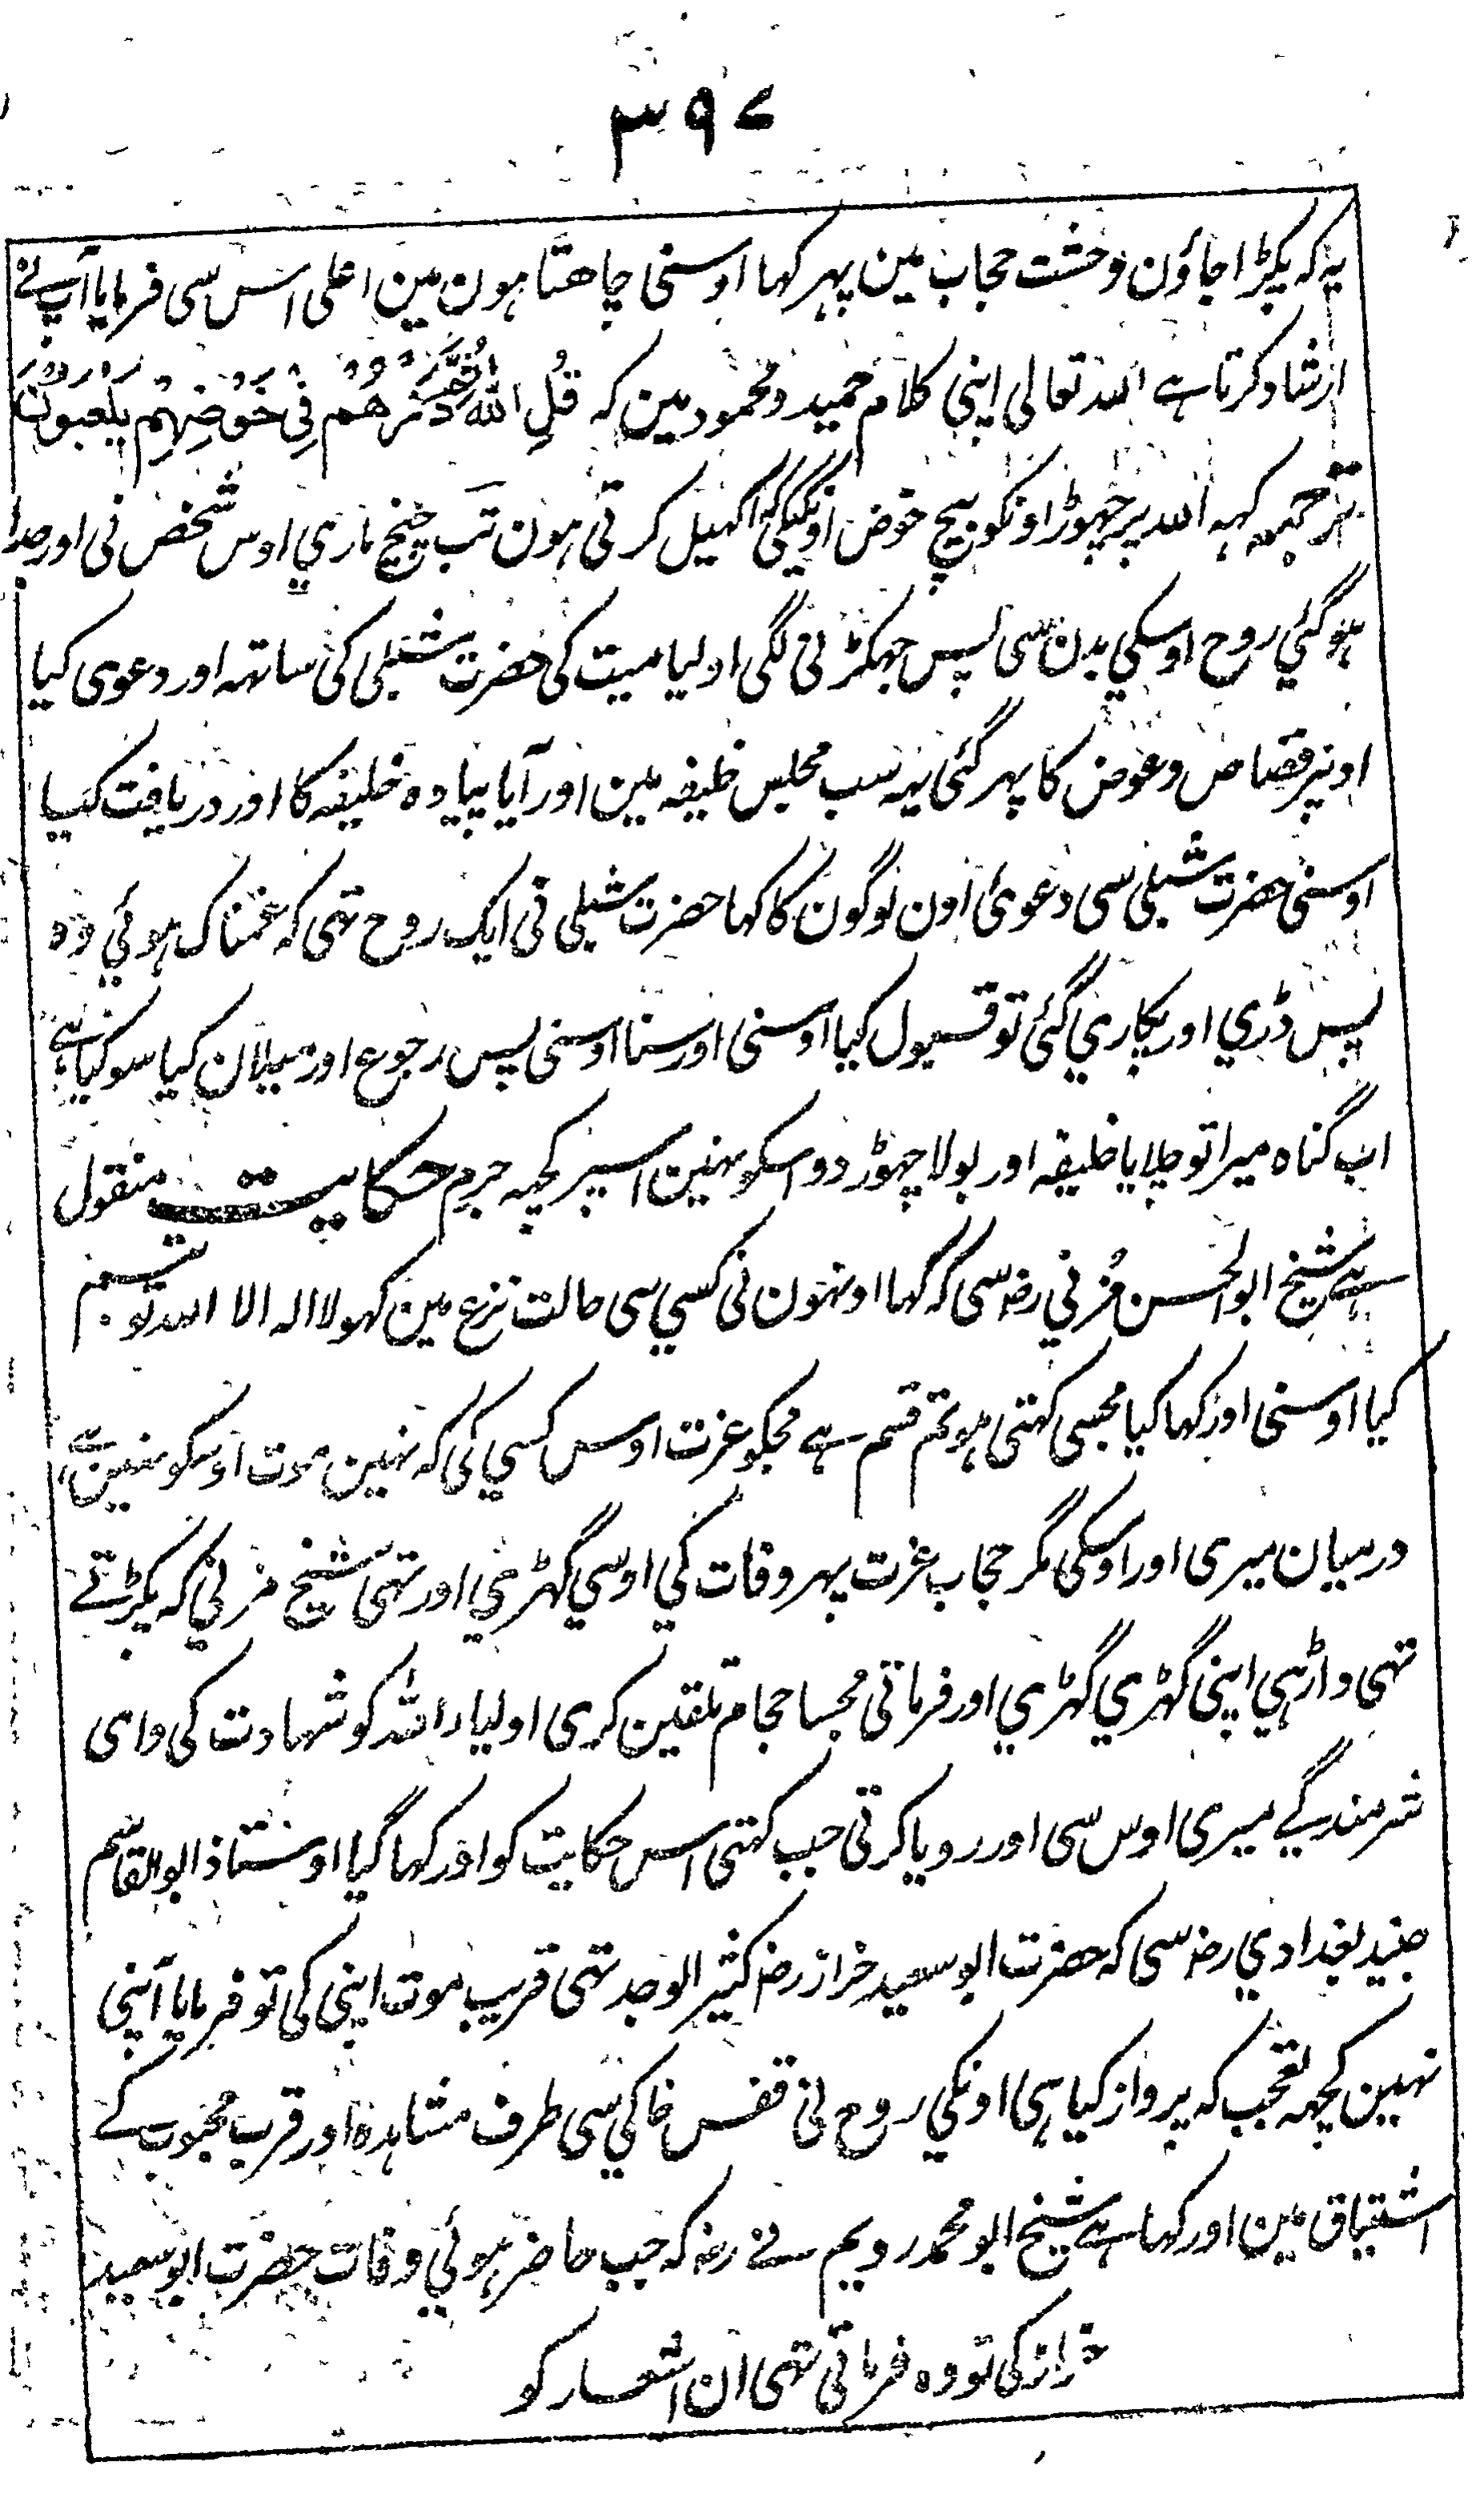 ۳۹۷
یہ کہ پکڑا جاؤن وحشت حجاب مین پہر کہا اوسنی چاهتا ہون مین اعلی اس سی فرمایا آپ نے
ارشاد کرتا ہے اللہ تعالی اپنی کلام حمید و محمود مین کہ قُلِ اللهُ ثُمَّ ذَرْهُمْ فِي خَوْضِهِمْ يَلْعَبُونَ
ترجمہ کہہ اللہ پر چہوڑ اونکو بیچ خوض اونکیکی کہیل کرتی ہون تب چیخ ماري اوس شخص نی اور جدا
ہوگئي روح اوسکي بدن سی پس جہگڑنی لگی اولیا میت کی حضرت شبلی کی ساتہہ اور دعوی کیا
اونپر قصاص و عوض کا پہر گئی یہہ سب مجلس خلیفہ مین اور آیا پیادہ خلیفہ کا اور دریافت کیا
اوسنی حضرت شبلی سی دعوی اون لوگون کا کہا حضرت شبلی نی ایک روح تہی کہ غمناک ہوئي وہ
پس ڈري اور پکاري گئی تو قبول کیا اوسنی اور سنا اوسنی پس رجوع اور میلان کیا سو کیا ہے
اب گناہ میرا تو چلایا خلیفہ اور بولا چہوڑ دو اسکو نہین اسپر کچہہ جرم حکایت منقول
ہے شیخ ابو الحسن مُزني رضہ سی کہ کہا اونہون نی کسي سی حالت نزع مین کہو لا الہ الا اللہ تو تبسم
کیا اوسنی اور کہا کیا مجسی کہتی ہو تم قسم ہے مجکو عزت اوس کسي کی کہ نہین موت اوسکو نہین ہے
درمیان میری اور اوسکی مگر حجاب عزت پہر وفات کي اوسي گہڑي اور تہی شیخ مزني کہ پکڑتے
تہی داڑہي اپنی گہڑي گہڑي اور فرماتی مجسا حجام تلقین کری اولیاء اللہ کو شہادت کی وای
شرمندگے میری اوس سی اور رویا کرتی جب کہتی اس حکایت کو اور کہا گیا اوستاذ ابو القاسم
جنید بغدادي رضہ سی کہ حضرت ابو سعید خراز رضہ کثیر الوجد تہی قریب موت اپنی کی تو فرمایا آپنی
نہین کچہہ تعجب کہ پرواز کیا ہی اونکي روح نی قفس خاکي سی طرف مشاہدہ اور قرب محبوب کے
اشتیاق مین اور کہا ہے شیخ ابو محمد رویم نے رضہ کہ جب حاضر ہوئي وفات حضرت ابو سعید
خراز کی تو وہ فرماتی تہی ان اشعار کو